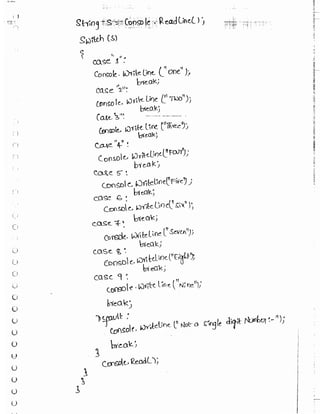 String s = Console.ReadLine();
Switch (s)
{
case "1":
Console.WriteLine("one");
break;
case "2":
Console.WriteLine("Two");
break;
Case "3":
Console.WriteLine("Three");
break;
Case "4":
Console.WriteLine("Four");
break;
case 5:
Console.WriteLine("Five");
break;
case 6:
Console.WriteLine("Six");
break;
case 7:
Console.WriteLine("Seven");
break;
case 8:
Console.WriteLine("Eight");
break;
case 9:
Console.WriteLine("Nine");
break;
Default:
Console.WriteLine("Not a Single digit Number:-");
break;
}
Console.ReadL();
}
}
}